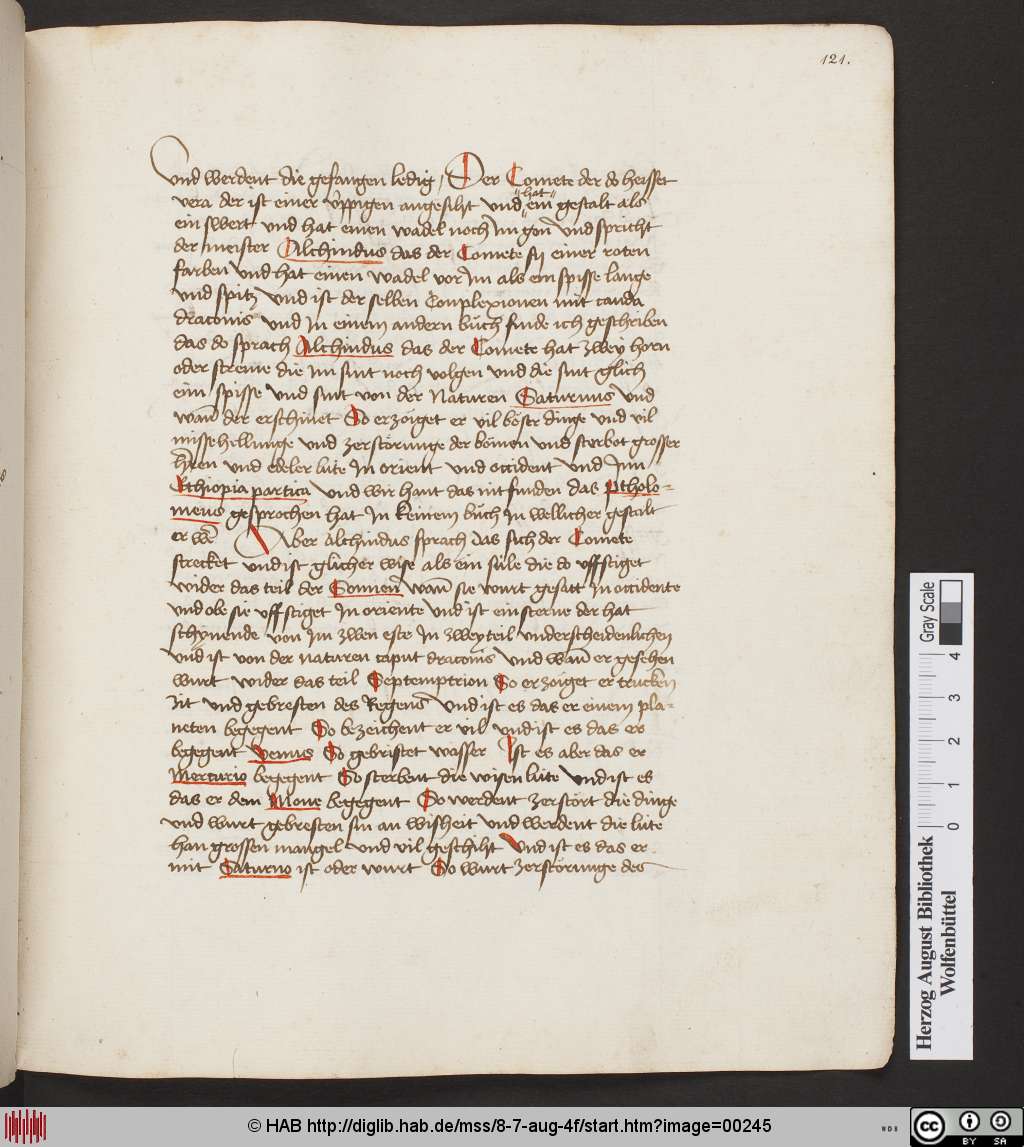 121.
Und werdent die gefangen ledig / Der Comete der do heisset
vera der ist einer üppigen angesiht und "hat" ein gestalt als
ein swert und hat einen wadel noch Im gon und spricht
der meister Alchindus das der Comete sy einer roten
farben Und hat einen wadel vor Im als ein spisse lange
und spitz und ist der selben Complexionen mit cauda
draconis und In einem andern buch finde ich geschriben
das do sprach Alchindus das der Comete hat zwey horn
oder streme die im sint noch volgen und die sint glich
eim spisse und sint von der Naturen Saturnus und
wan der erschinet So erzöiget er vil böser dinge und vil
missehellunge und zerstörunge der bömen und sterbot grosser
herren und edeler lüte In orient und occident und Inn
Ethiopia partica und wir hant das nit funden das Ptholo=
meus gesprochen hat In keinem buch In wellicher gestalt
er were Aber Alchindus sprach das sich der Comete
strecket und ist glicher wise als ein süle die do uffstiget
wider das teil der Sonnen wan sie wurt gesatt In occidente
und obe sie uffstiget In oriente und ist ein sterne der hat
schynende von Im zwen este In zwey teil underscheidenlichen
und ist von der naturen caput draconis und wan er gesehen
wurt wider das teil Septemptrion So erzöiget er trucken
Zit und gebresten des Regens und ist es das er einem pla=
neten begegent So bezeichent er vil und ist es das er
begegent Venus So gebristet wasser Ist es aber das er
Mercurio begegent So sterbent die wisen lüte und ist es
das er dem Mone begegent So werdent zerstört die dinge
und wurt gebresten sin an wisheit und werdent die lüte
han grossen mangel und vil geschiht Und ist es das er
mit Saturno ist oder wurt So wurt zerstörunge des
Gray Scale
0 1 2 3 4
Herzog August Bibliothek
Wolfenbüttel
© HAB http://diglib.hab.de/mss/8-7-aug-4f/start.htm?image=00245
WDB
CC BY SA